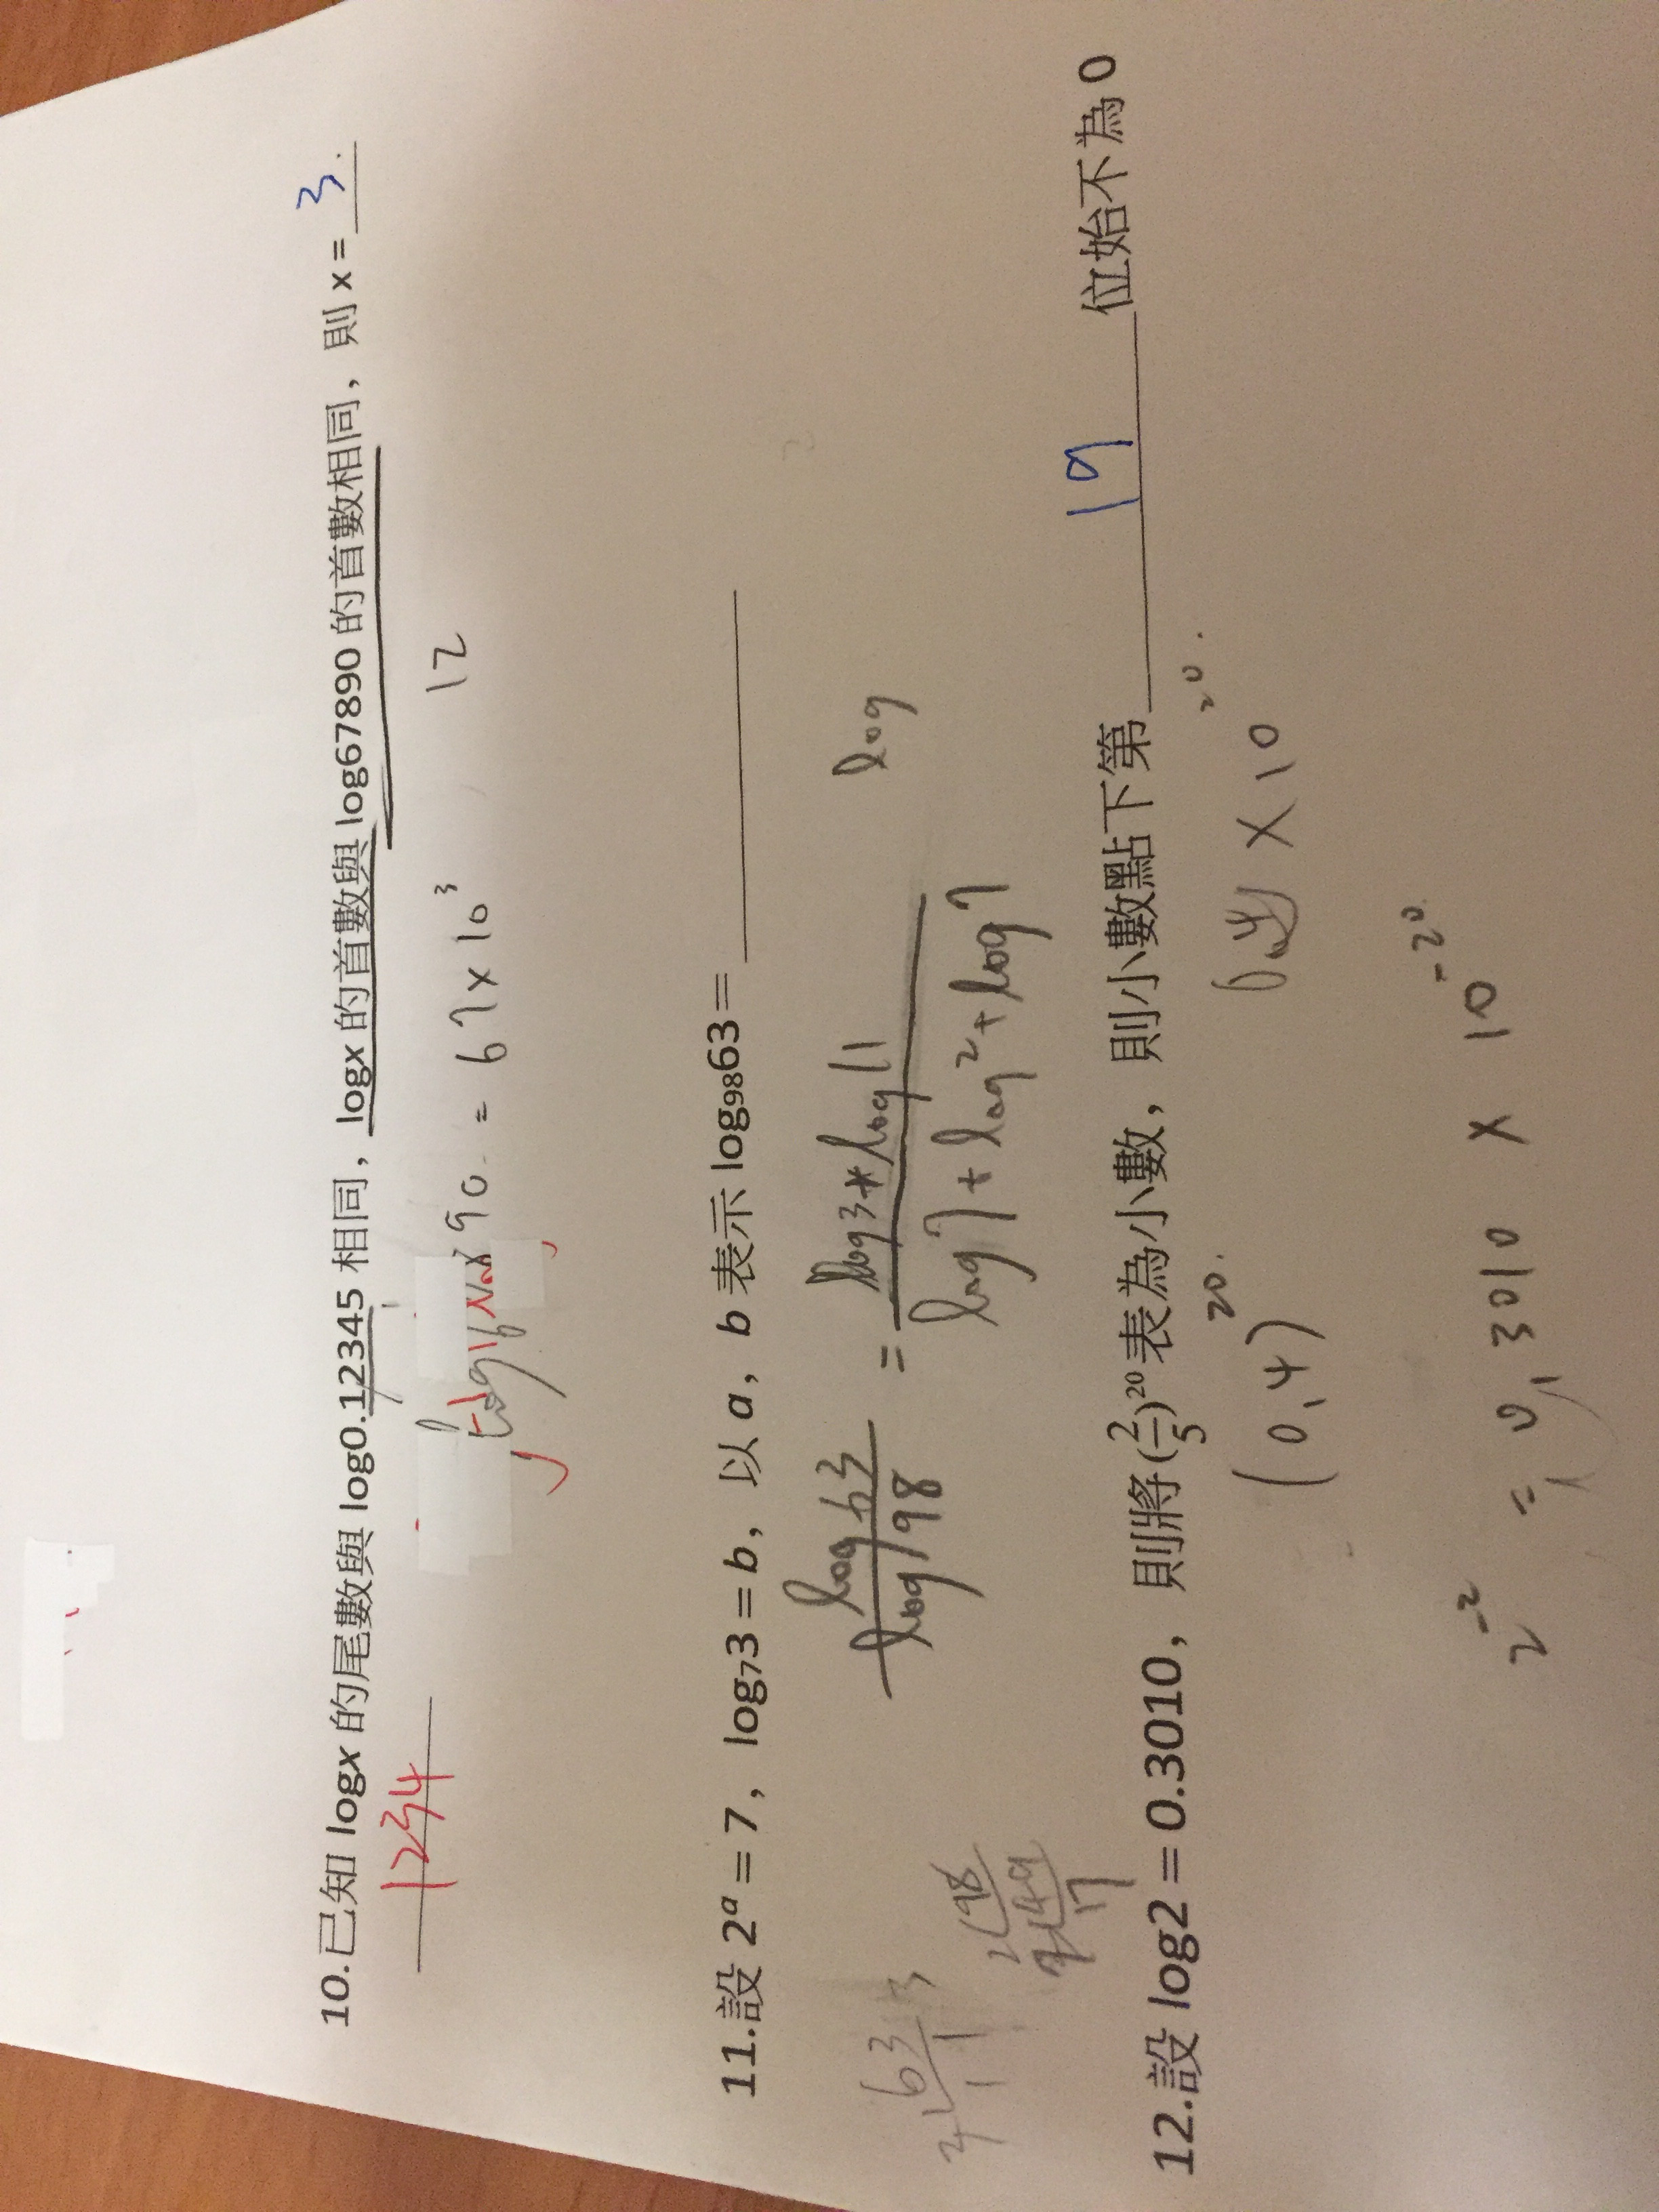 10.已知 logx 的尾數與 log0.12345 相同，logx 的首數與 log67890 的首數相同，則 x = 3.
1234
90. = 67 x 10³
12
11.設 2ᵃ = 7，log₇3 = b，以 a，b 表示 log₉₈63 =
log 63 / log 98 = log3 * log11 / log7 + log2 + log7
log
63
2 98
49
7
12.設 log2 = 0.3010，則將(2/5)²⁰表為小數，則小數點下第 19 位始不為 0
(0,4)²⁰.
X 10²⁰.
2⁻² = 0,3010 X 10⁻²⁰.